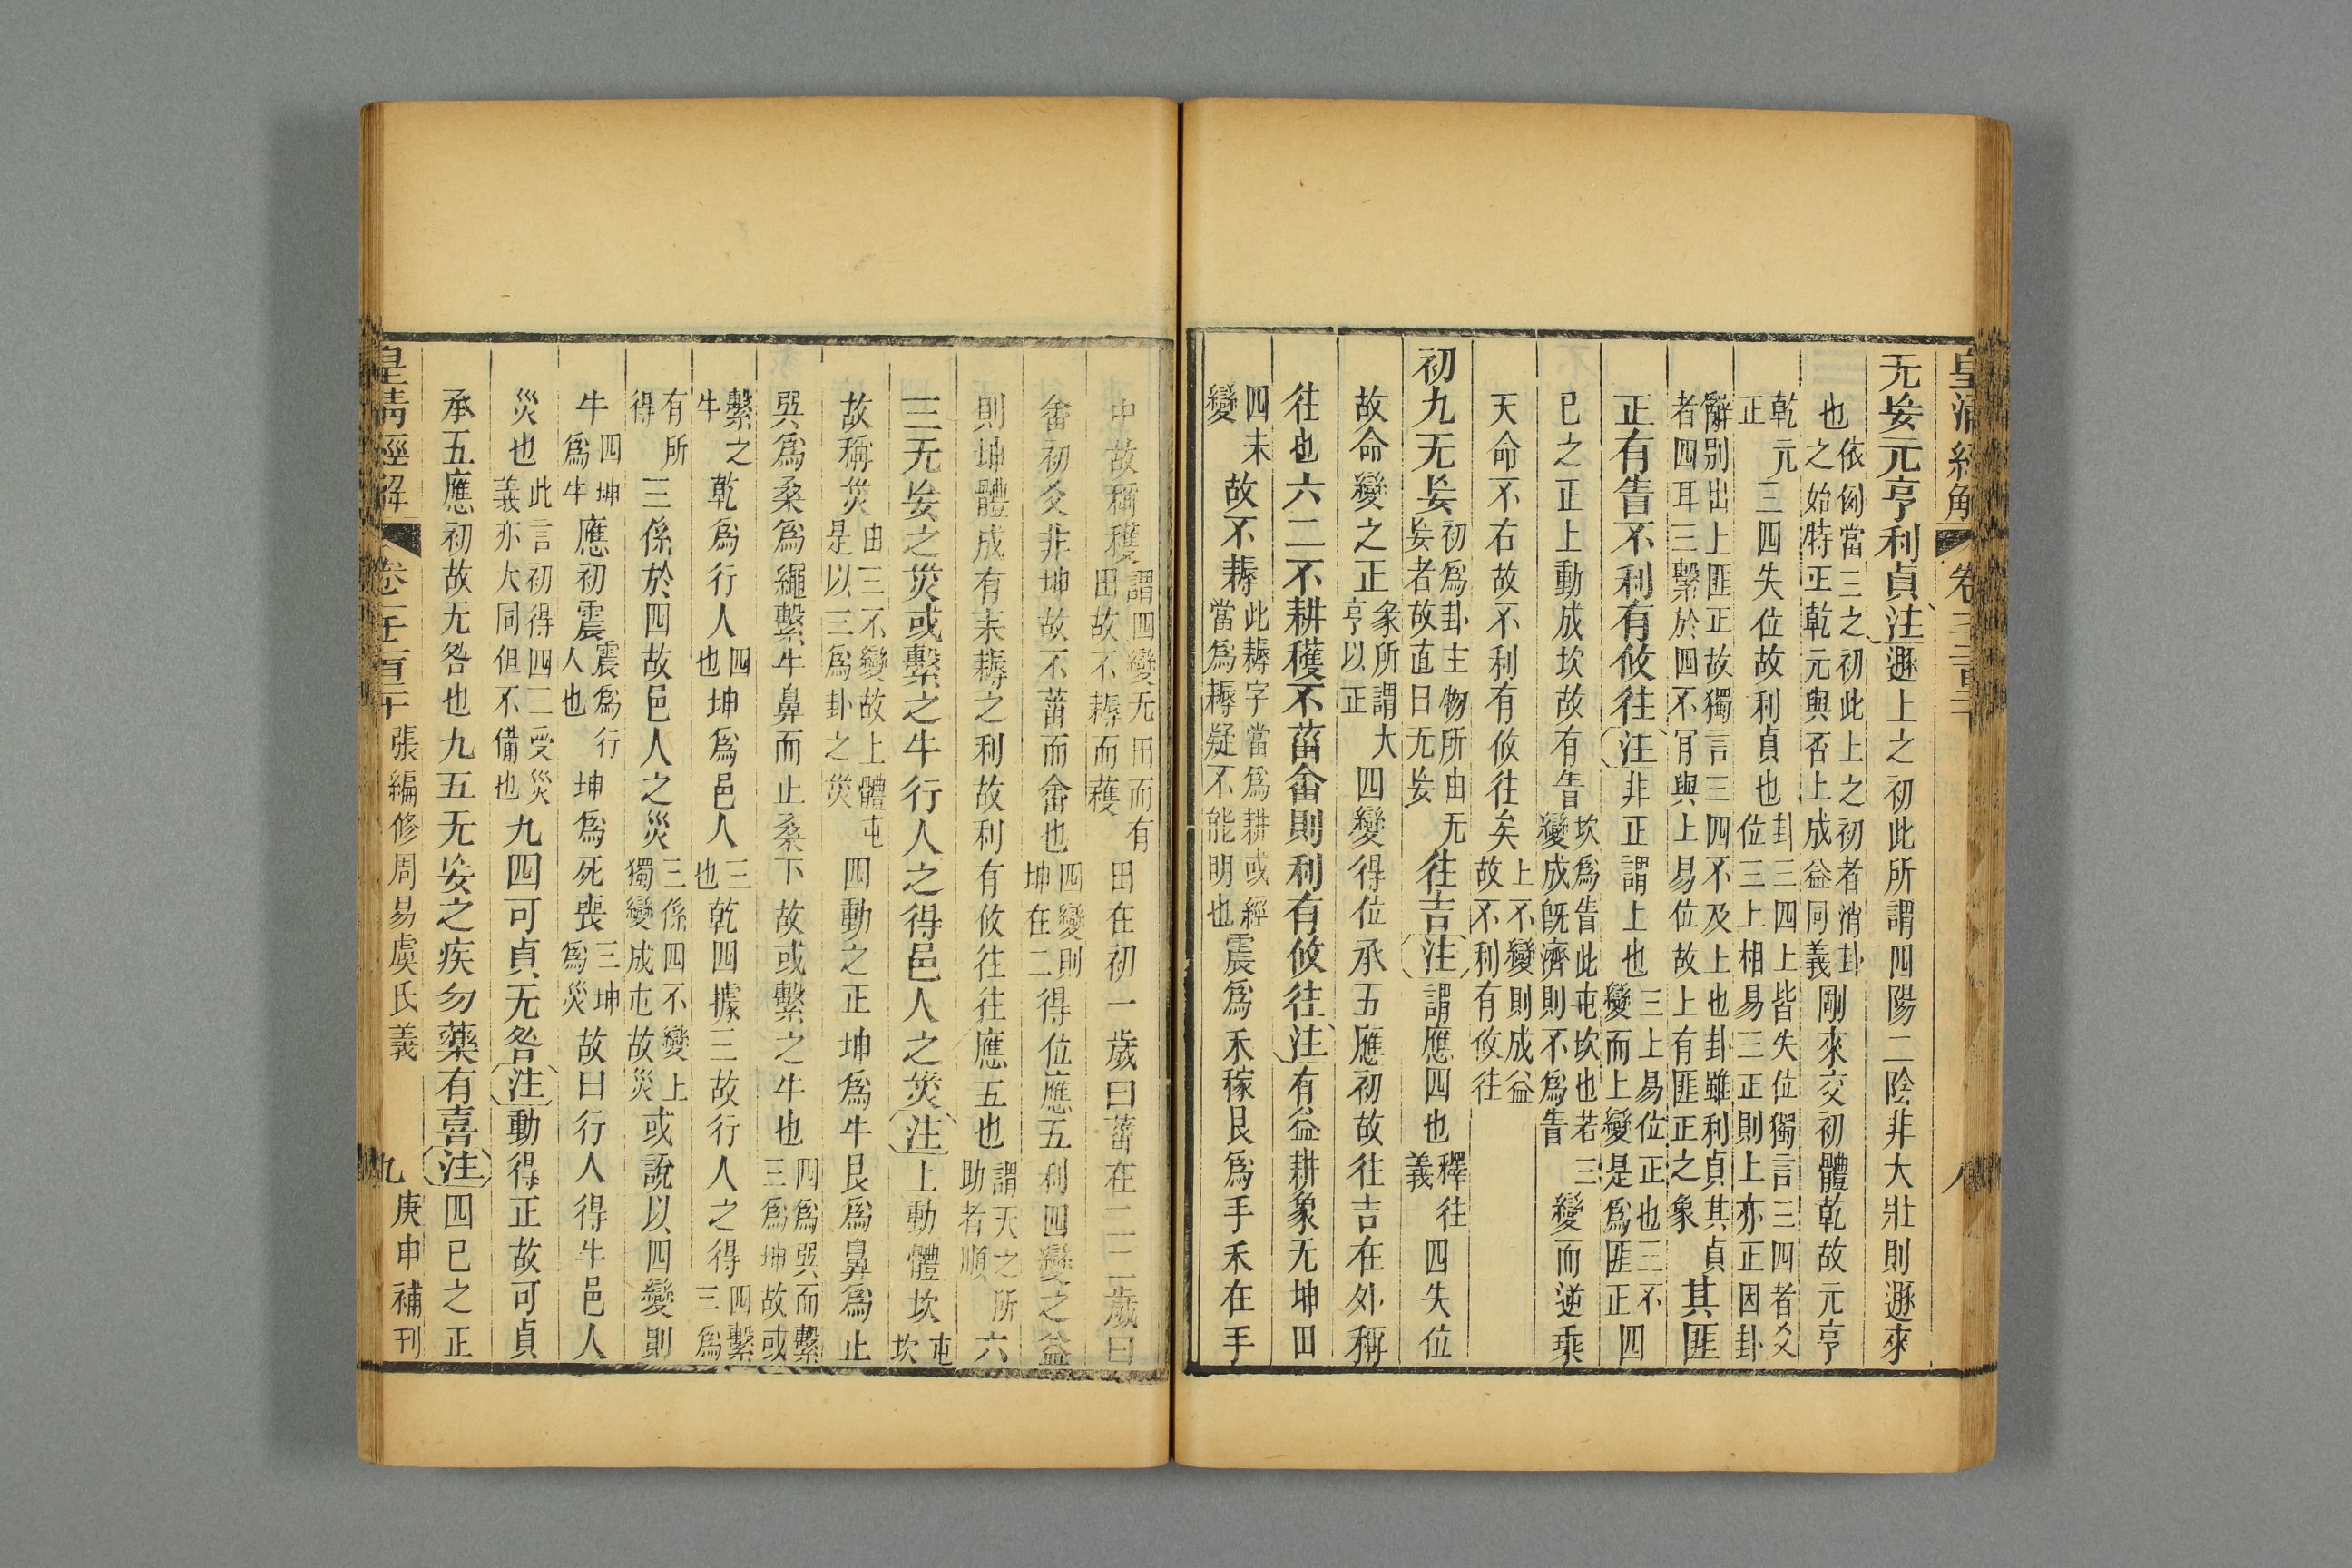 皇清經解 卷
八
无妄元亨利貞注遯上之初此所謂四陽二陰非大壯則遯來
也依例當三之初此上之初者消卦之始特正乾元與否上成益同義剛來交初體乾故元亨
乾元正三四失位故利貞也卦三四上皆失位獨言三四者爻位三上相易三正則上亦正因卦
辭別出上匪正故獨言三四不及上也卦雖利貞其貞者四耳三繫於四不肎與上易位故上有匪正之象其匪
正有眚不利有攸往注非正謂上也三上易位正也三不變而上變是爲匪正四
已之正上動成坎故有眚坎爲眚此屯坎也若三變成旣濟則不爲眚變而逆乘
天命不右故不利有攸往矣上不變則成益故不利有攸往
初九无妄初爲卦主物所由无妄者故直曰无妄往吉注謂應四也釋往義四失位
故命變之正彖所謂大亨以正四變得位承五應初故往吉在外稱
往也六二不耕穫不菑畬則利有攸往注有益耕象无坤田
四未變故不耨此耨字當爲耕或經當爲耨疑不能明也震爲禾稼艮爲手禾在手
中故稱穫謂四變无田而有田故不耨而穫田在初一歲曰菑在二二歲曰
畬初爻非坤故不菑而畬也四變則坤在二得位應五利四變之益
則坤體成有耒耨之利故利有攸往往應五也謂天之所助者順六
三无妄之災或繫之牛行人之得邑人之災注上動體坎屯坎
故稱災由三不變故上體屯是以三爲卦之災四動之正坤爲牛艮爲鼻爲止
巽爲桑爲繩繫牛鼻而止桑下故或繫之牛也四爲巽而繫三爲坤故或
繫之牛乾爲行人四也坤爲邑人三也乾四據三故行人之得四繫三爲
有所得三係於四故邑人之災三係四不變上獨變成屯故災或說以四變則
牛四坤爲牛應初震震爲行人也坤爲死喪三坤爲災故曰行人得牛邑人
災也此言初得四三受災義亦大同但不備也九四可貞无咎注動得正故可貞
承五應初故无咎也九五无妄之疾勿藥有喜注四已之正
皇清經解 卷 張編修周易虞氏義 九 庚申補刊